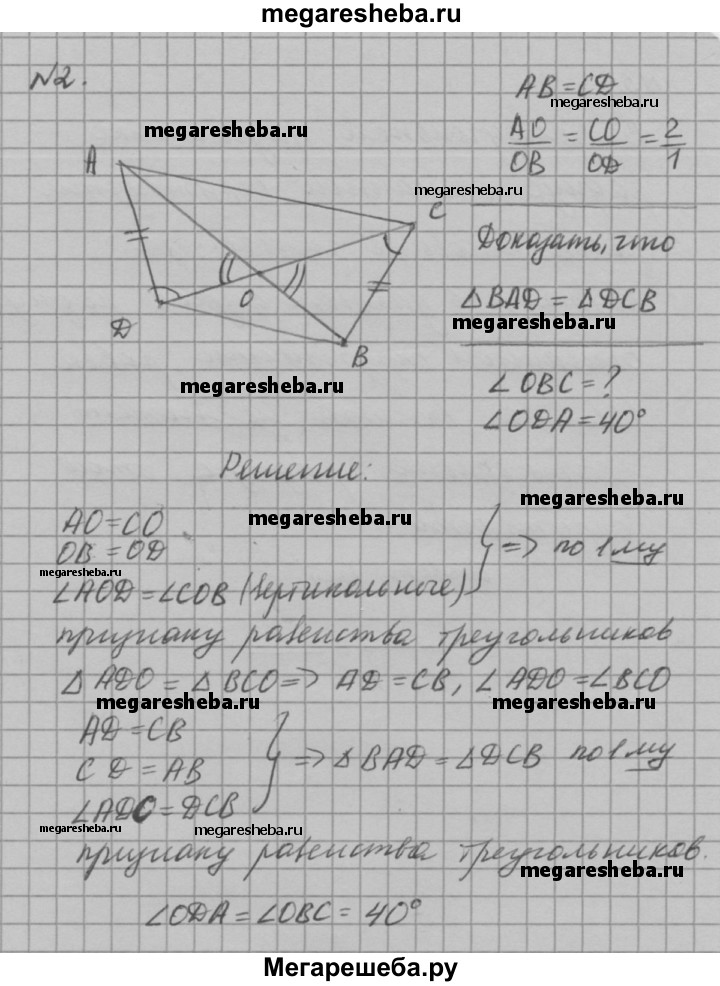 megaresheba.ru
№2.
AB = CD
megaresheba.ru
megaresheba.ru
AO/OB = CO/OD = 2/1
A
megaresheba.ru
C
Доказать, что
O
△BAD = △DCB
D
megaresheba.ru
B
megaresheba.ru
∠OBC = ?
∠ODA = 40°
Решение:
megaresheba.ru
AO = CO
megaresheba.ru
OB = OD
=> по 1му
megaresheba.ru
∠AOD = ∠COB (вертикальные)
признаку равенства треугольников
△ADO = △BCO => AD = CB, ∠ADO = ∠BCO
megaresheba.ru
megaresheba.ru
AD = CB
CD = AB
=> △BAD = △DCB по 1му
∠ADO = DCB
megaresheba.ru
megaresheba.ru
признаку равенства треугольников.
megaresheba.ru
∠ODA = ∠OBC = 40°
Мегарешеба.ру